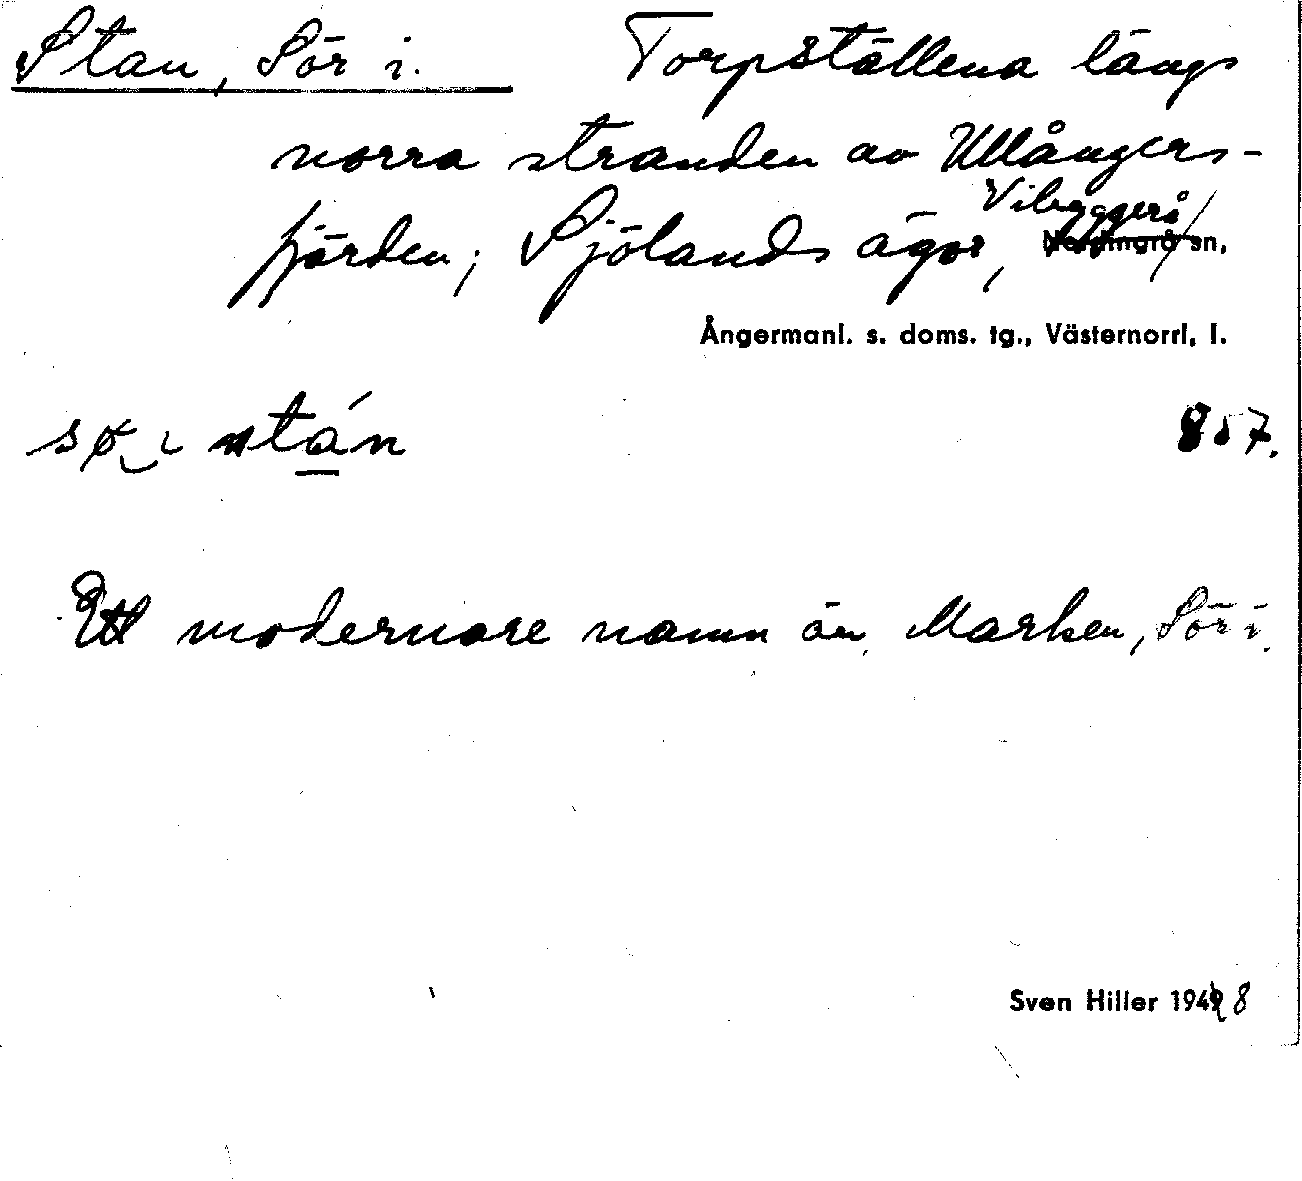 Stan, Sör i. Torpställena längs
norra stranden av Ullångers-
fjärden; Sjölands ägor, Vibyggerå sn,
Ångermanl. s. doms. tg., Västernorrl. l.
sø i stán 857.
Ett modernare namn än Marken, Sör i.
Sven Hiller 1948